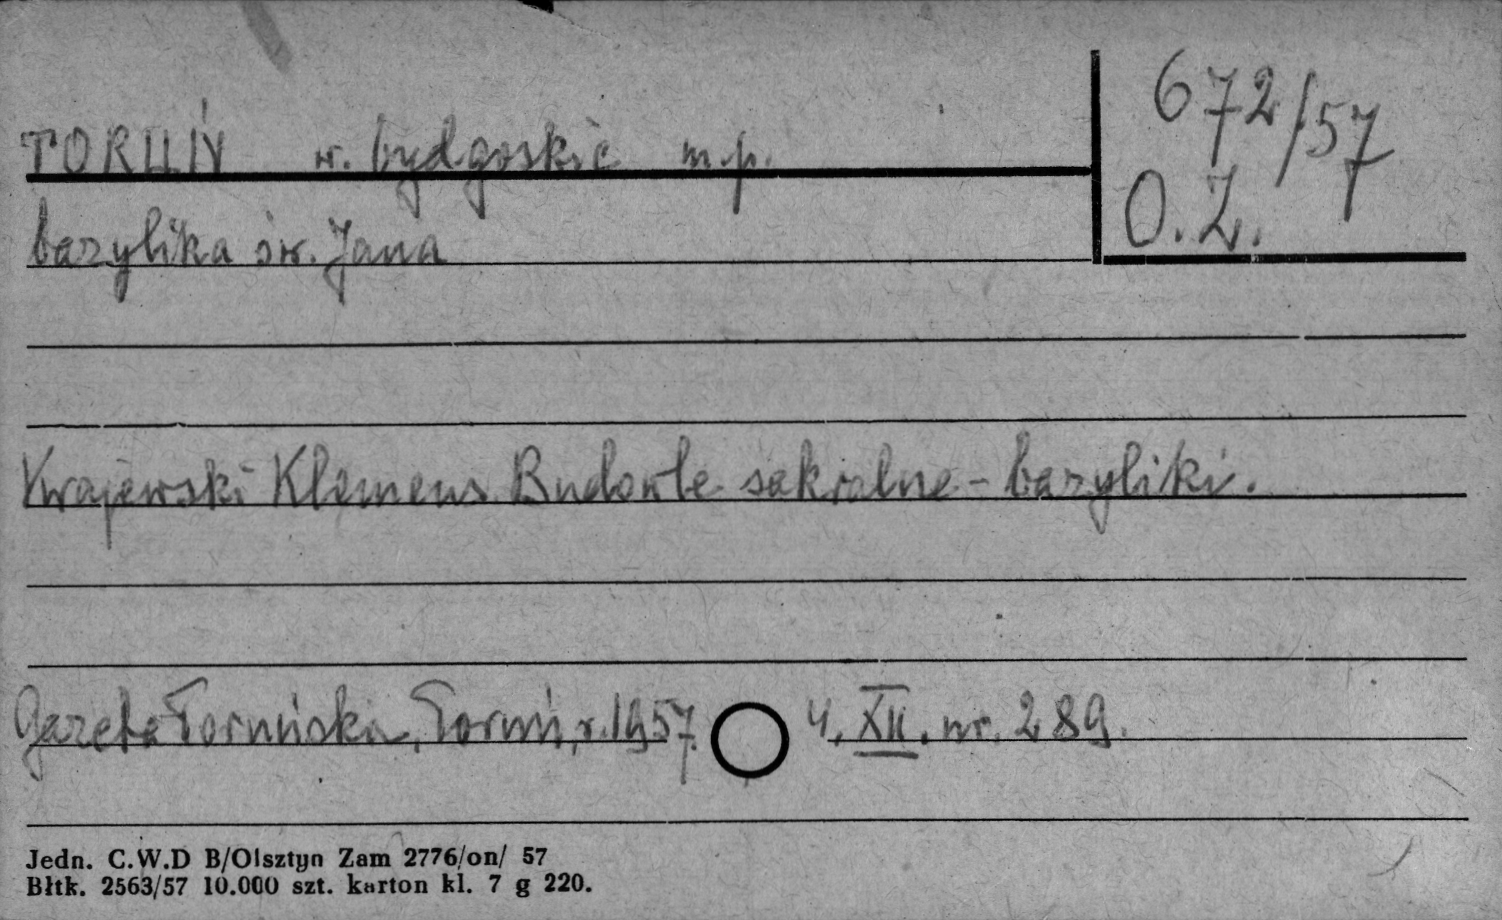 TORUŃ w. bydgoskie m.p.
672/57
O.Z.
bazylika św. Jana
Krajewski Klemens Budowle sakralne - bazyliki.
Gazeta Toruńska, Toruń, r. 1957 4. XII. nr. 289.
Jedn. C.W.D B/Olsztyn Zam 2776/on/ 57
Błtk. 2563/57 10.000 szt. karton kl. 7 g 220.